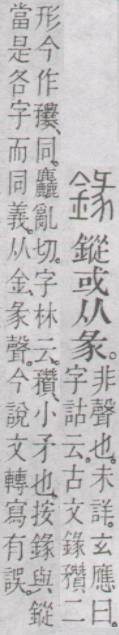 鏦或从彖。
非聲也。未詳。玄應曰。
字詁云。古文穳二
形。今作穳。同。麤亂切。字林云。穳、小矛也。按與鏦
當是各字而同義。从金、彖聲。今說文轉寫有誤。